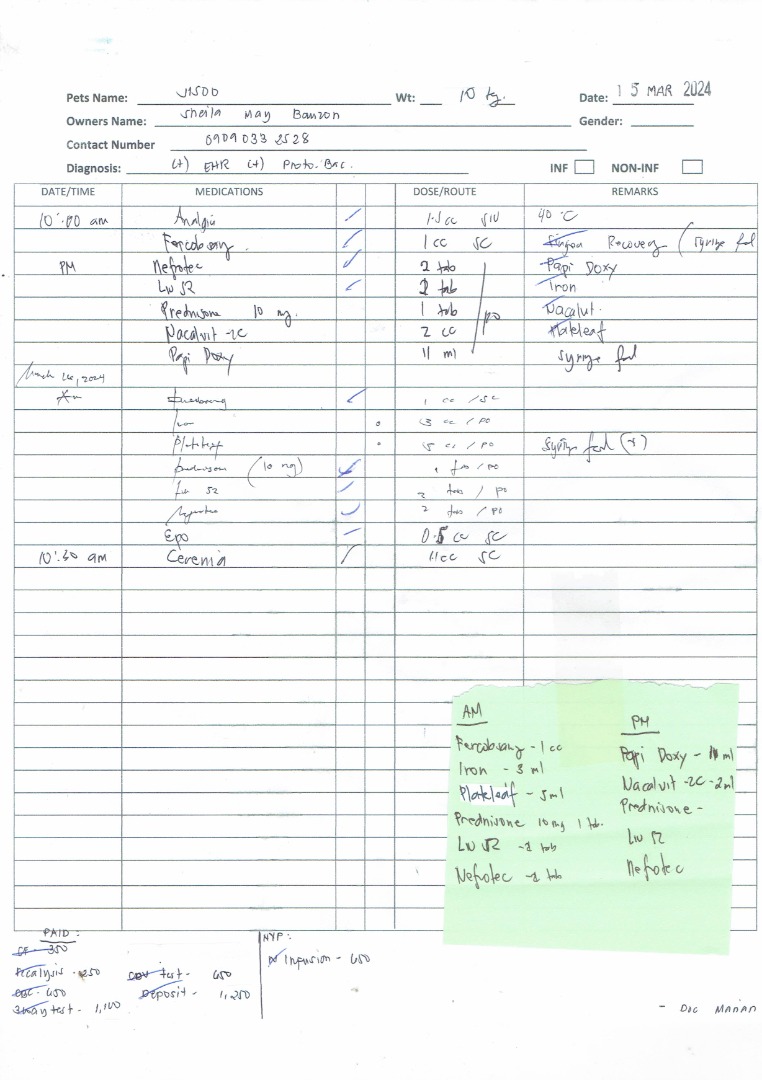 Pets Name: JISOO Wt: 10 kg. Date: 15 MAR 2024
Owners Name: Sheila May Banzon Gender:
Contact Number 0909 033 2528
Diagnosis: (+) EHR (+) Proto. Bac. INF NON-INF
DATE/TIME MEDICATIONS DOSE/ROUTE REMARKS
10:00 am 1.5 cc SIV 40 °C
Fercobsang 1 cc SC Recovery (Syringe
PM Nefrotec 2 tab Papi Doxy
LIV 52 2 tab Iron
Prednisone 10 mg. 1 tab po Nacalvit
Nacalvit -2C 2 cc Plateleaf
Papi Doxy 11 ml Syringe
March 16, 2024
AM Fercobsang 1 cc /SC
Iron 3 cc / PO
Plateleaf 5 cc / PO Syringe (+)
Prednisone (10 mg) 1 tab / PO
Liv 52 2 tabs / PO
Nefrotec 2 tabs / PO
Epo 0.5 cc SC
10:30 am Cerenia 1cc SC
AM
Fercobsang - 1 cc
Iron - 3 ml
Plateleaf - 5ml
Prednisone 10 mg 1 tab.
LIV 52 -2 tab
Nefrotec -2 tab
PM
Papi Doxy - 11 ml
Nacalvit -2C -2ml
Prednisone -
LIV 52
Nefrotec
PAID :
CF - 350
- 250 CDV test - 650
CBC - 650 Deposit - 1,250
3way test - 1,100
NYP:
IV Infusion - 650
- DOC MARIAN